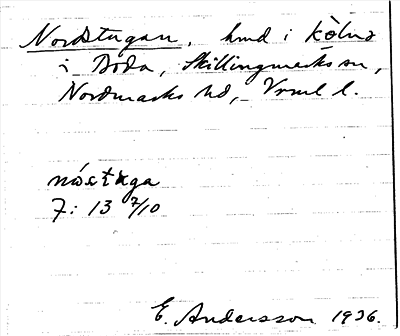 Nordstugan, hmd i Kölna
i Böda, Skillingmarks sn,
Nordmarks hd, Vrml l.
nóstuga
7: 13 7/10
E. Andersson 1936.